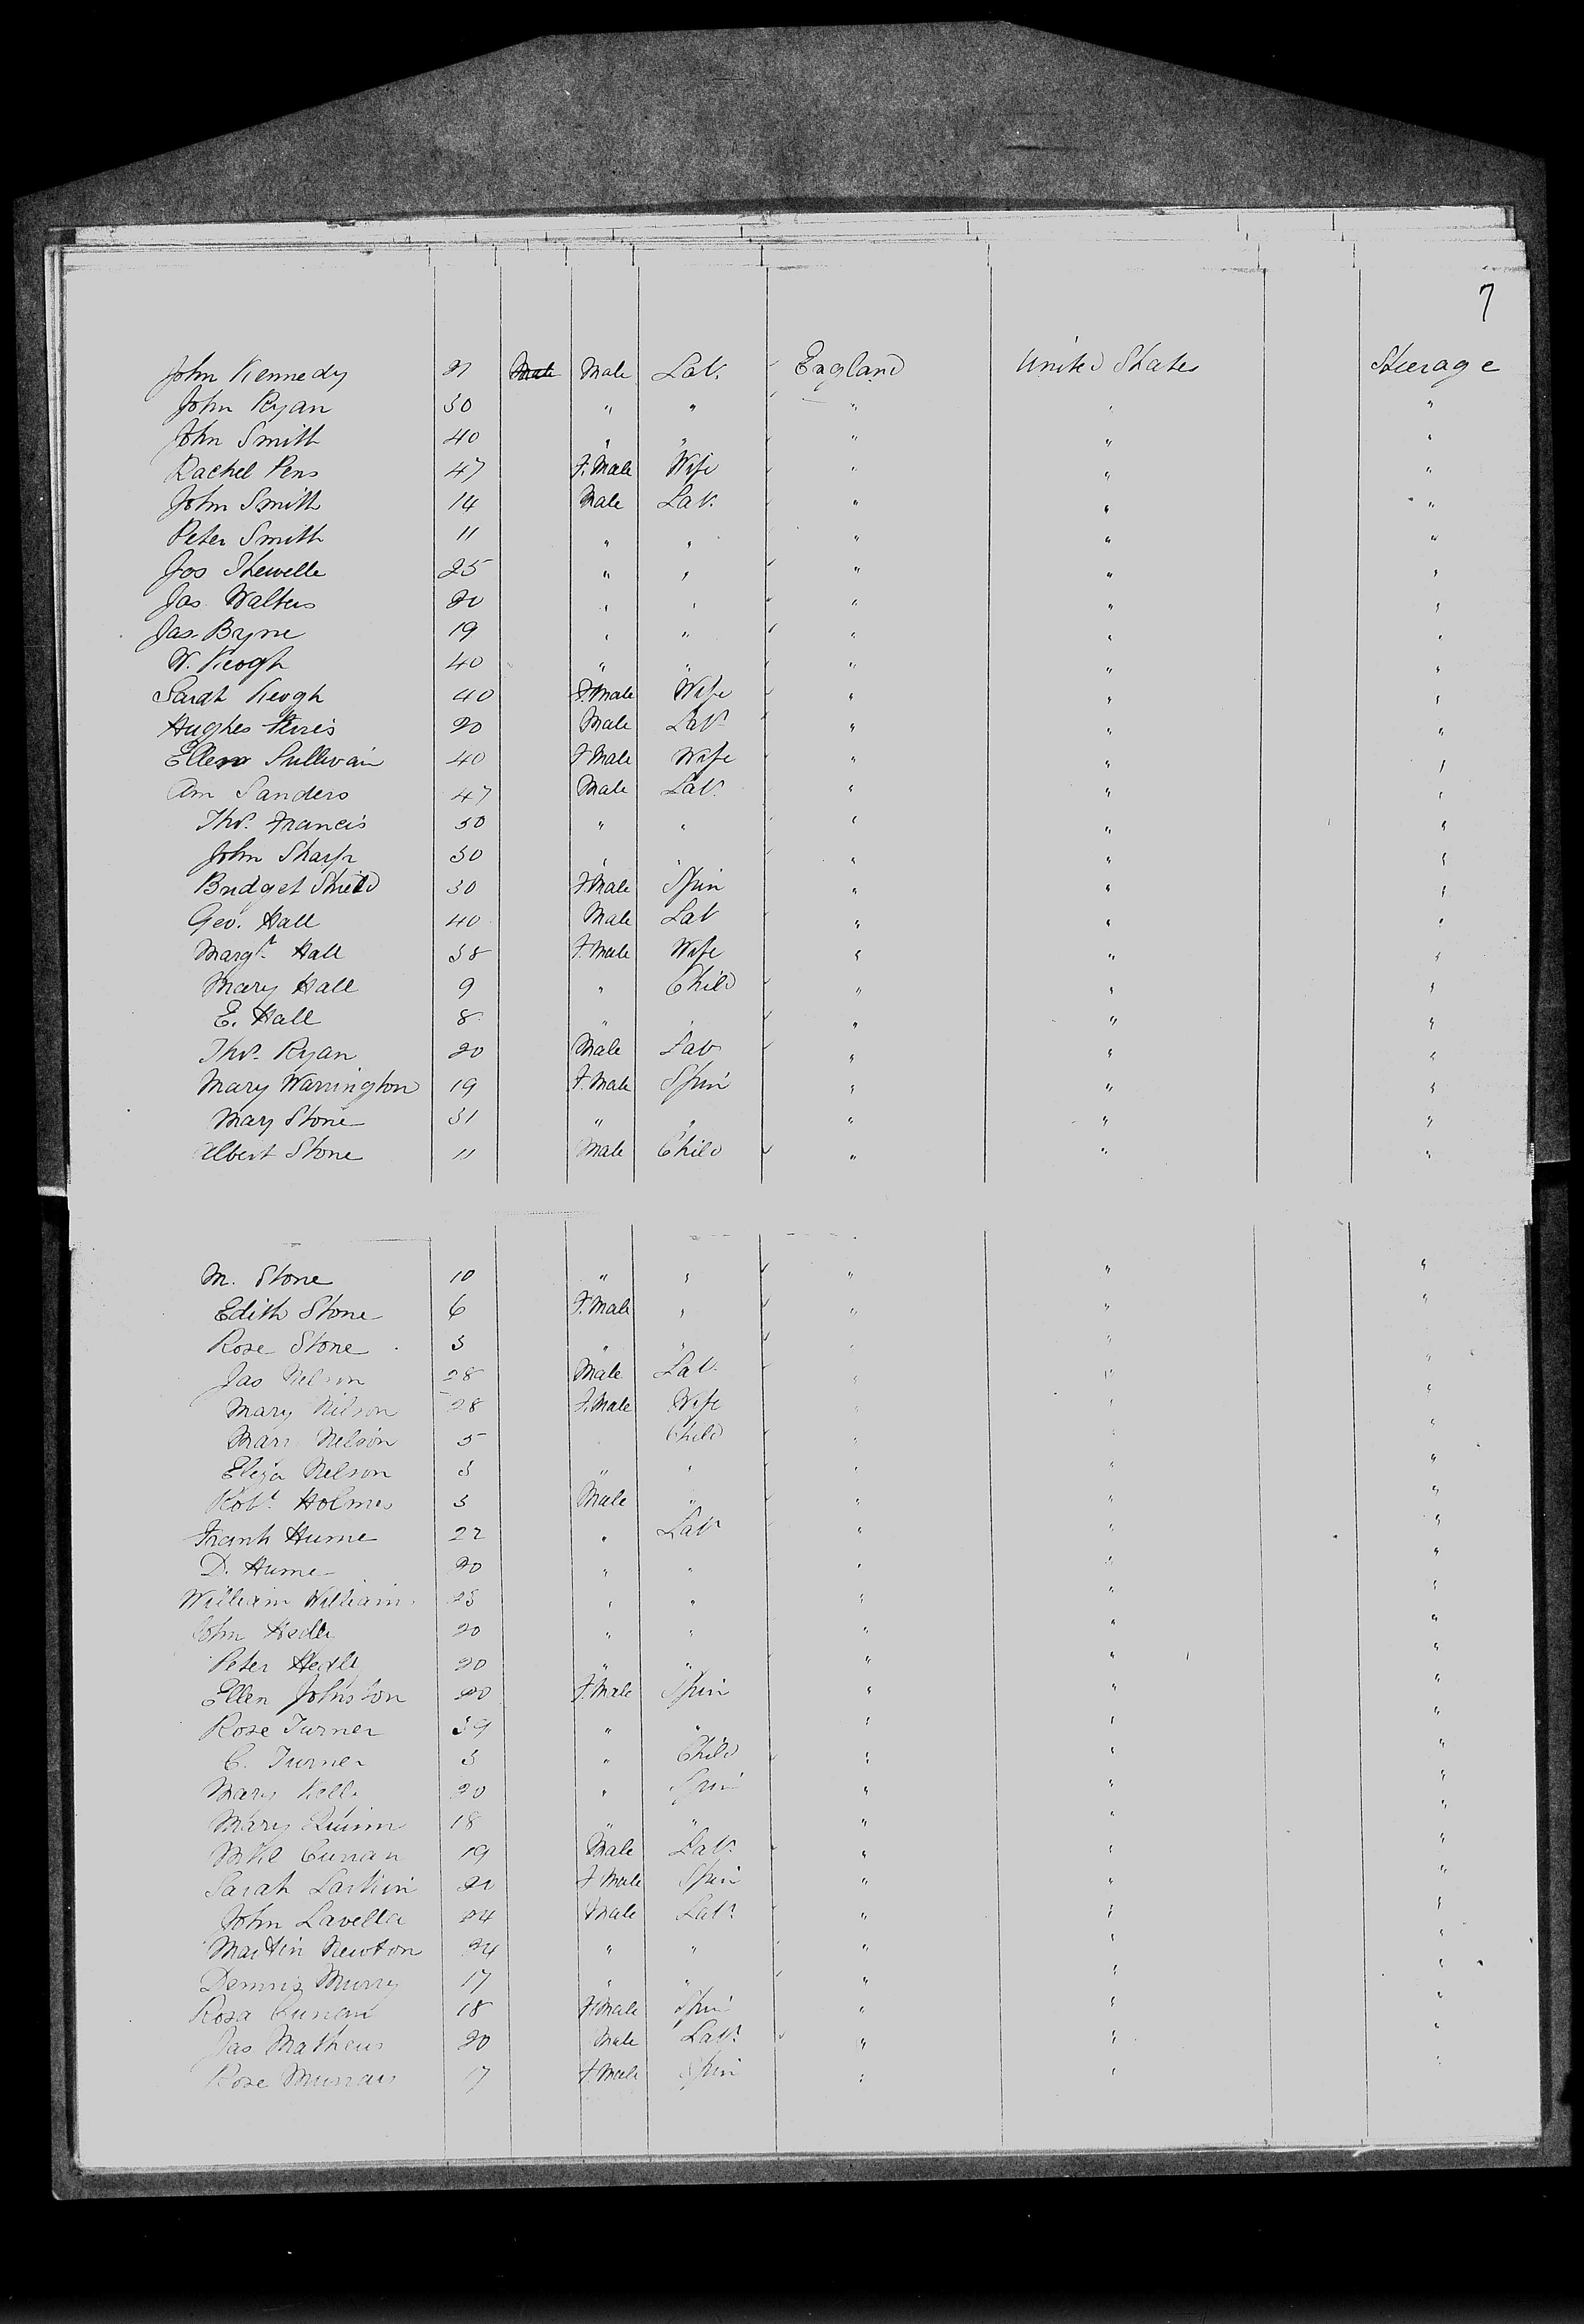 7
John Kennedy 21 Male Male Lab. England United States Steerage
John Ryan 30 " " " " "
John Smith 40 " " " " "
Rachel Pens 47 F.Male Wife " " "
John Smith 14 Male Lab. " " "
Peter Smith 11 " " " " "
Jos Thewelle 25 " " " " "
Jas Walters 20 " " " " "
Jas. Bryne 19 " " " " "
W. Keogh 40 " " " " "
Sarah Keogh 40 F.Male Wife " " "
Hughes 20 Male Labr " " "
Ellen Sullivan 40 F.Male Wife " " "
Am Sanders 47 Male Labr " " "
Thos. Francis 50 " " " " "
John Sharp 30 " " " " "
Bridget Shield 30 F.Male Spin " " "
Geo. Hall 40 Male Lab " " "
Margt. Hall 38 F.Male Wife " " "
Mary Hall 9 " Child " " "
E. Hall 8 " " " " "
Thos. Ryan 20 Male Lab " " "
Mary Warrington 19 F.Male Spin " " "
Mary Stone 31 " " " " "
Albert Stone 11 Male Child " " "
M. Stone 10 " " " " "
Edith Stone 6 F.Male " " " "
Rose Stone 3 " " " "
Jas Nelson 28 Male Lab. " " "
Mary Nelson 28 F.Male Wife " " "
Mary Nelson 5 Child " " "
Eliza Nelson 3 " " " " "
Robt. Holmes 3 Male " " " "
Frank Hume 22 " Labr " " "
D. Hume 20 " " " " "
William Williams 23 " " " " "
John 20 " " " " "
Peter 20 " " " " "
Ellen Johnston 20 F.Male Spin " " "
Rose Turner 39 " " " " "
C. Turner 3 " Child " " "
Mary Kelly 20 " Spin " " "
Mary Quinn 18 " " " " "
Mihl Curran 19 Male Labr " " "
Sarah Larkin 20 F.Male Spin " " "
John Lavella 24 Male Labr " " "
Martin Newton 24 " " " " "
Dennis Murry 17 " " " " "
Rosa Curran 18 F.Male Spin " " "
Jas Mathews 20 Male Labr " " "
Rose Murray 17 F.Male Spin " " "